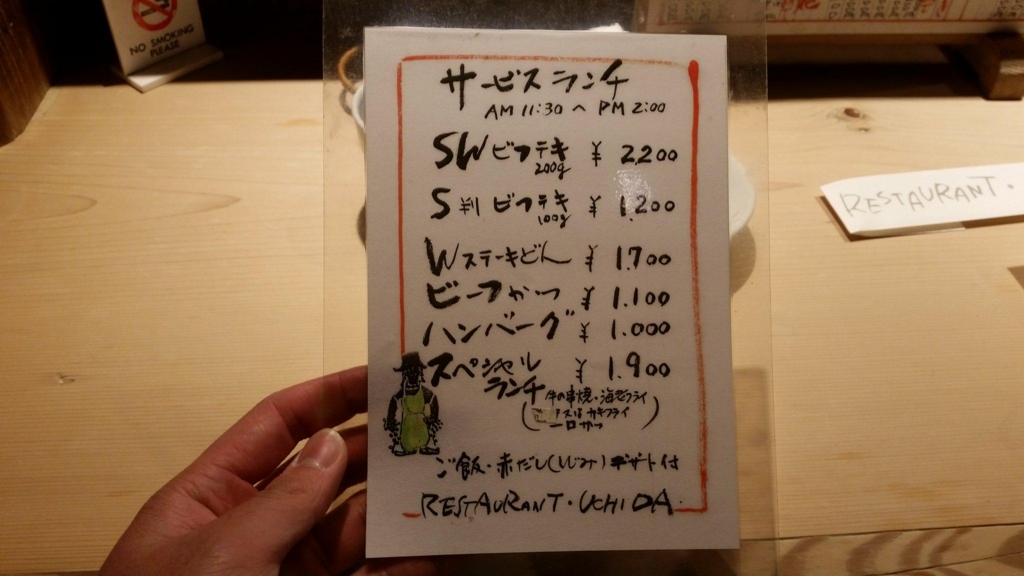 NO SMOKING
PLEASE
サービスランチ
AM 11:30 〜 PM 2:00
SW ビフテキ 200g ¥ 2.200
S判 ビフテキ 100g ¥ 1.200
Wステーキどん ¥ 1.700
ビーフかつ ¥ 1.100
ハンバーグ ¥ 1.000
スペシャル ¥ 1.900
ランチ
(牛の串焼・海老フライ
又は カキフライ
一口かつ)
ご飯・赤だし(しじみ) デザート付
RESTAURANT・UCHIDA
RESTAURANT・